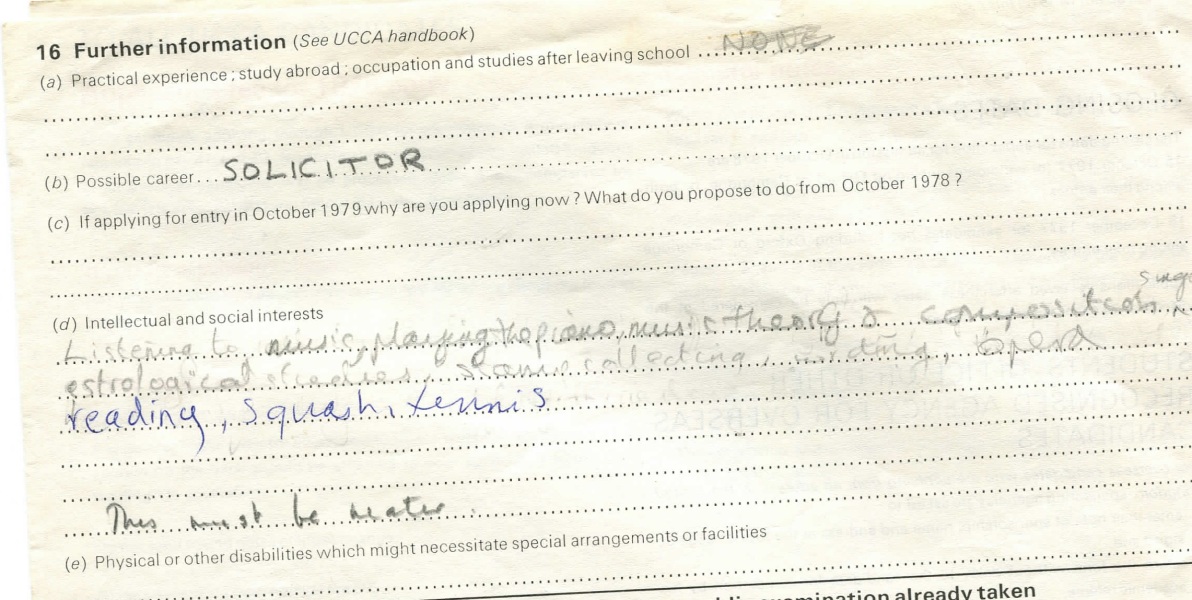 16 Further information (See UCCA handbook)
(a) Practical experience; study abroad; occupation and studies after leaving school NONE
(b) Possible career SOLICITOR
(c) If applying for entry in October 1979 why are you applying now? What do you propose to do from October 1978?
(d) Intellectual and social interests
Listening to music, playing the piano, music theory & composition,
estrological studies, stamp collecting, writing, opera
reading, squash, tennis
This must be neater.
(e) Physical or other disabilities which might necessitate special arrangements or facilities
examination already taken